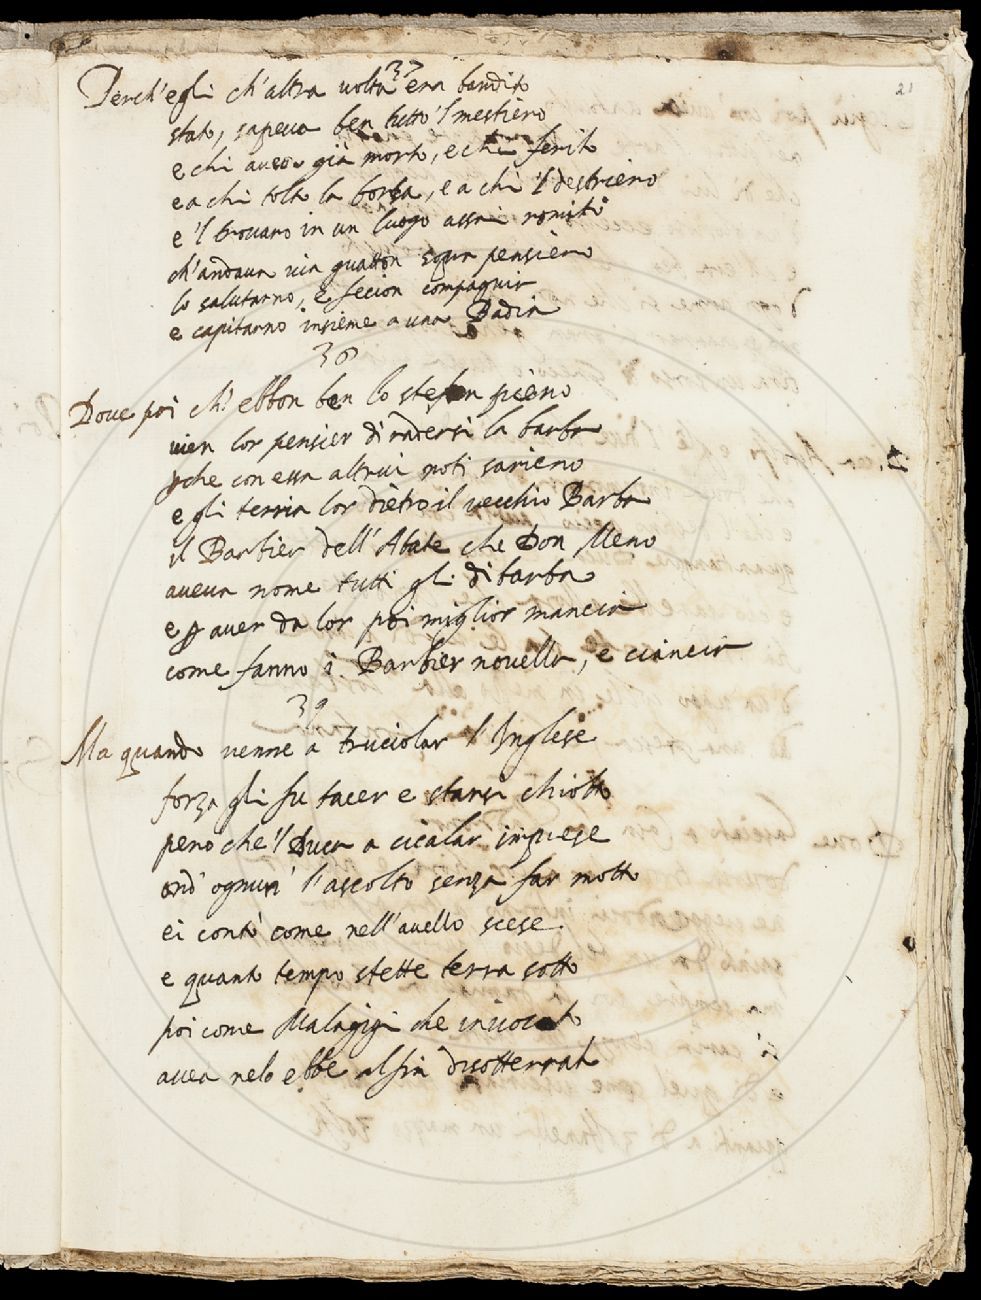 21
37
Perch'egli ch'altra volta era bandito
stato, sapeua ben tutto 'l mestiero
e chi aueo già morto, e chi ferito
e a chi tolto la borsa, e a chi 'l destriero
e 'l trouaro in un luogo assai romito
ch'andaua uia guatton sopra pensiero
lo salutarno, e fecion compagnia
e capitarno insieme a una Badia
38
Doue poi ch' ebbon ben lo stefan pieno
uien lor pensier di radersi la barba
che con essa altrui noti sarieno
e gli terria lor dietro il vecchio Barba
il Barbier dell'Abate che Don Meno
aueua nome tutti gli disbarba
e p auer da lor poi miglior mancia
come fanno i Barbier nouella, e ciancia
39
Ma quando uenne a truciolar l'Inglese
forza gli fu tacer e starsi chiotto
pero che 'l Duca a cicalar imprese
ond' ognun l'ascolto senza far motto
ei contò come nell'auello scese
e quanto tempo stette terra sotto
poi come Malagigi che inuocato
auea nelo ebbe alfin disotterrato